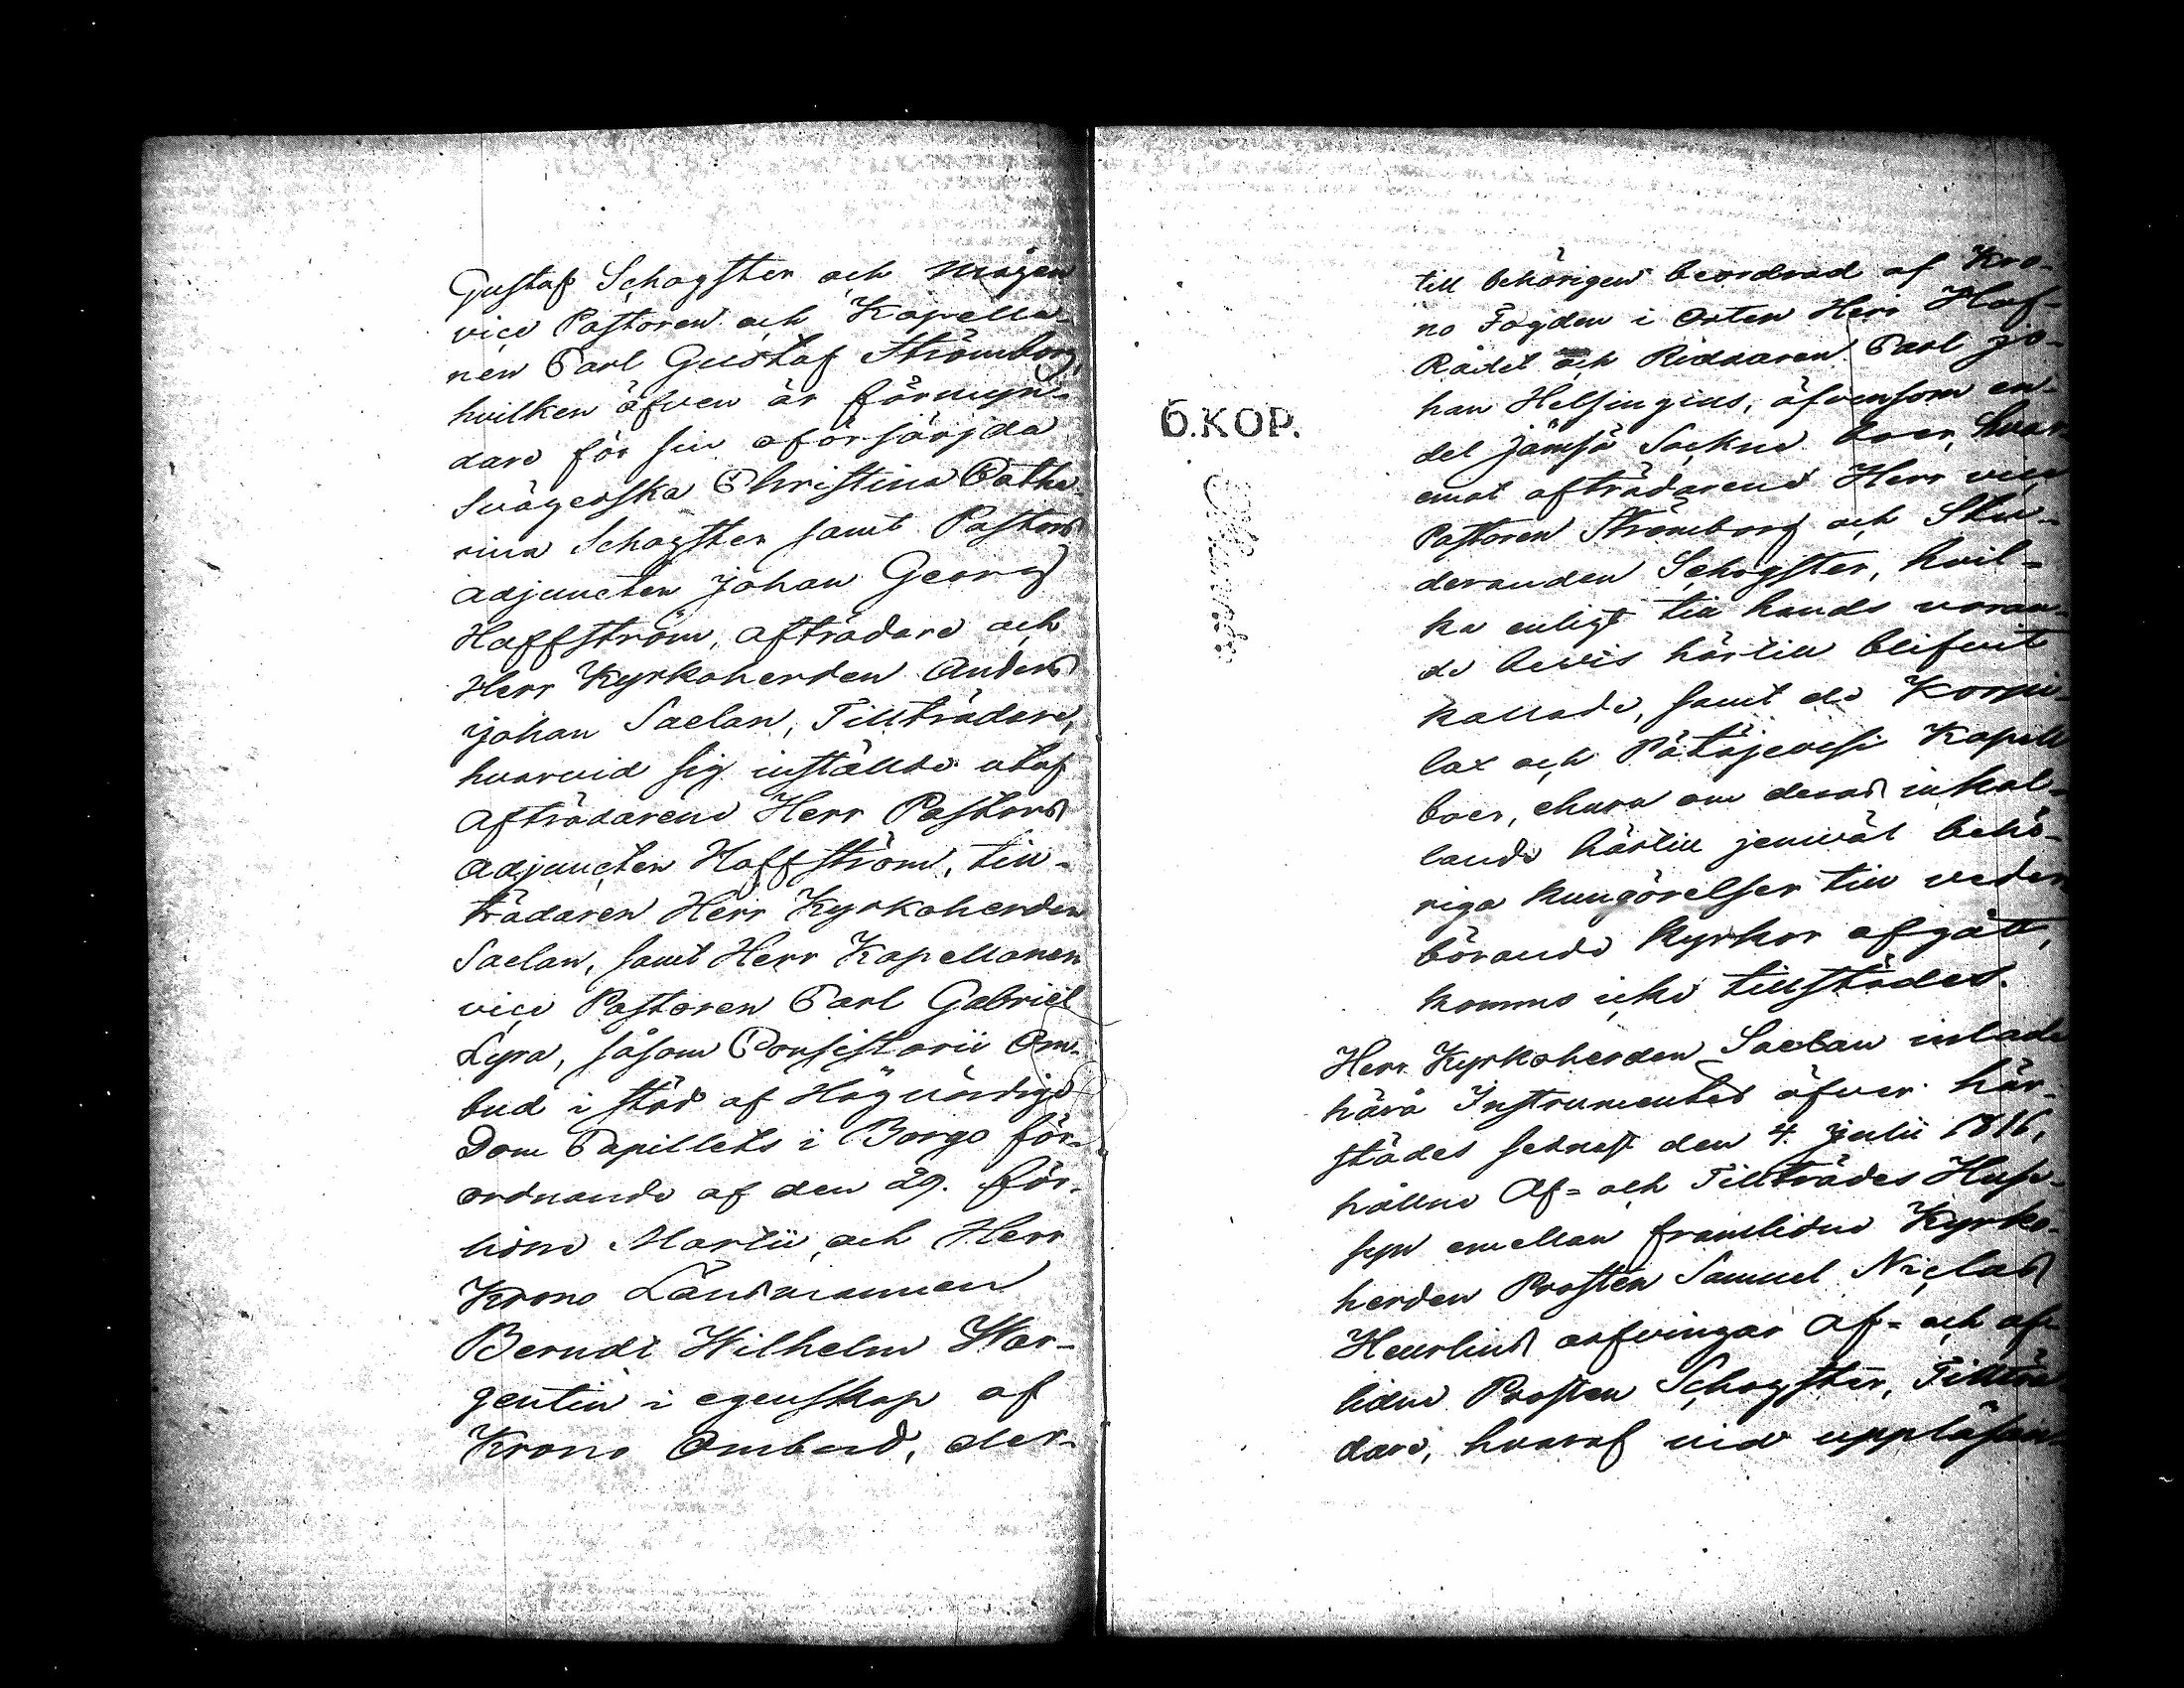 Gustaf Schogster och mågen
vice Pastoren och Kapella-
nen Carl Gustaf Strömborg,
hvilken äfven är förmyn-
dare för sin oförsörjda
Svägerska Christina Cathe-
rina Schogster samt Pastors
adjuncten Johan Georg
Haffström, afträdare och
Herr Kyrkoherden Anders
Johan Saelan, Tillträdare,
hvarvid sig inställde utaf
Afträdarene Herr Pastors
adjuncten Haffström, till-
trädaren Herr Kyrkoherden
Saelan, samt Herr Kapellanen
vice Pastoren Carl Gabriel
Lyra, såsom Consistorii Om-
bud i stöd af Högvördige
Dom Capillets i Borgo för-
ordnande af den 29. för-
lidne Martii och Herr
Krono Länsmannen
Berndt Wilhelm War-
gentin i egenskap af
Krono Ombud, der-
6.KOP.
till behörigen beordrad af Kro-
no Fogden i Orten Herr Hof-
Rådet och Riddaren Carl Jo-
han Helsingius, äfvensom en-
del Jämsä Sockne boer, hvar-
emot afträdarene Herr vice
Pastoren Strömborg och Stu-
deranden Schogster, hvil-
ka enligt till hands varan-
de bevis härtill blifvit
kallade, samt de Korpi-
lax och Pätäjevesi Kapell
boer, ehuru om deras inkal-
lande härtill jemväl behö-
riga kungörelser till veder-
börande Kyrkor afgått,
kommo icke tillstädes.
Herr Kyrkoherden Saelan inlade
härå Instrumentet öfver här-
städes sednast den 4. Julii 1816,
hållne Af- och Tillträdes Hus-
syn emellan framlidne Kyrko-
herden Prosten Samuel Niclas
Heurlins arfvingar Af- och af-
lidne Prosten Schogster, Tillträ-
dare, hvaraf vid uppläsan-